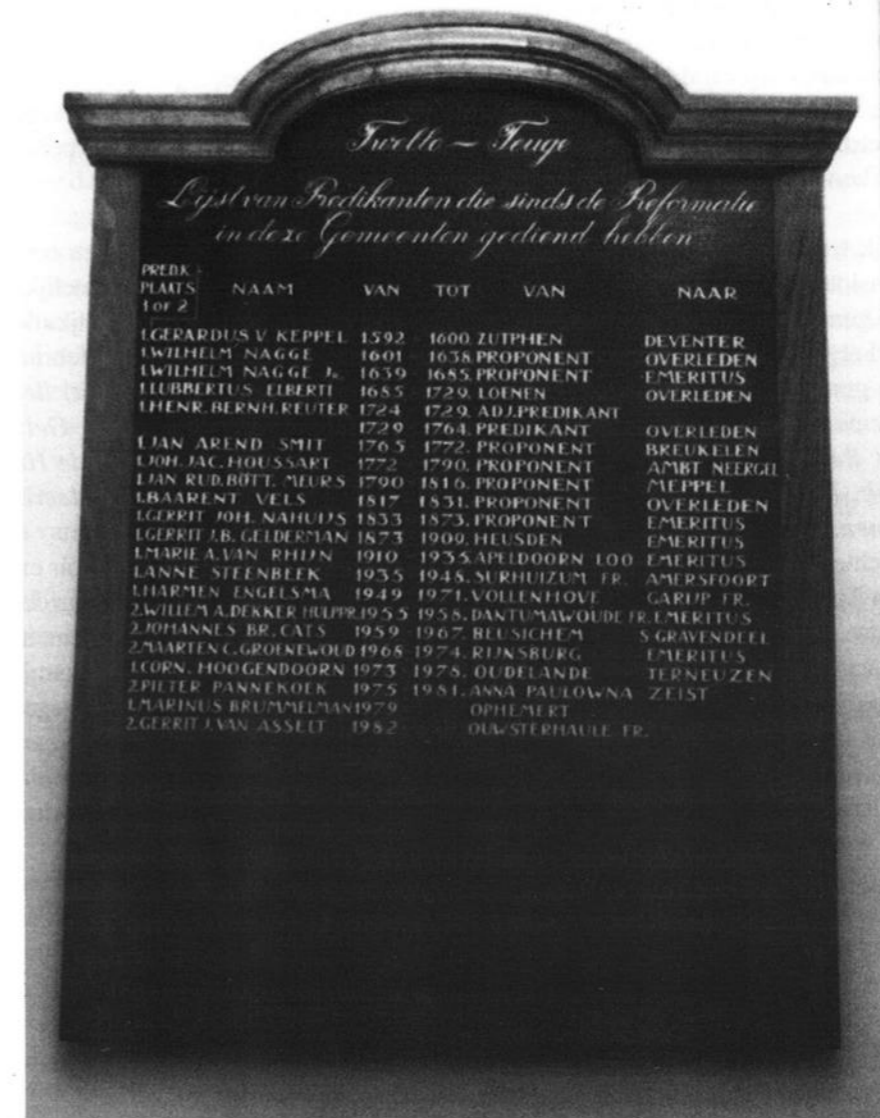 Twello - Teuge
Lijst van Predikanten die sinds de Reformatie
in deze Gemeenten gediend hebben
PRED.K
PLAATS NAAM VAN TOT VAN NAAR
1 or 2
1.GERARDUS V KEPPEL 1592 - 1600. ZUTPHEN DEVENTER
1.WILHELM NAGGE 1601 1638. PROPONENT OVERLEDEN
1.WILHELM NAGGE Jr. 1639 1685. PROPONENT EMERITUS
1.LUBBERTUS ELBERTI 1685 1729. LOENEN OVERLEDEN
1.HENR. BERNH. REUTER 1724 1729. ADJ.PREDIKANT
1729 1764. PREDIKANT OVERLEDEN
1.JAN AREND SMIT 1765 1772. PROPONENT BREUKELEN
1.JOH. JAC. HOUSSART 1772 1790. PROPONENT AMBT NEERGEL
1.JAN RUD. BÖTT. MEURS 1790 1816. PROPONENT MEPPEL
1.BAARENT VELS 1817 1831. PROPONENT OVERLEDEN
1.GERRIT JOH. NAHUIJS 1833 1873. PROPONENT EMERITUS
1.GERRIT J.B. GELDERMAN 1873 1909. HEUSDEN EMERITUS
1.MARIE A. VAN RHIJN 1910 1935. APELDOORN LOO EMERITUS
1.ANNE STEENBEEK 1935 1948. SURHUIZUM FR. AMERSFOORT
1.HARMEN ENGELSMA 1949 1971. VOLLENHOVE GARIJP FR.
2.WILLEM A. DEKKER HULPPR. 1955 1958. DANTUMAWOUDE FR. EMERITUS
2.JOHANNES BR. CATS 1959 1967. BEUSICHEM S GRAVENDEEL
2.MAARTEN C. GROENEWOUD 1968 1974. RIJNSBURG EMERITUS
1.CORN. HOOGENDOORN 1973 1978. OUDELANDE TERNEUZEN
2.PIETER PANNEKOEK 1975 1981. ANNA PAULOWNA ZEIST
1.MARINUS BRUMMELMAN 1979 OPHEMERT
2.GERRIT J. VAN ASSELT 1982 OUWSTERHAULE FR.